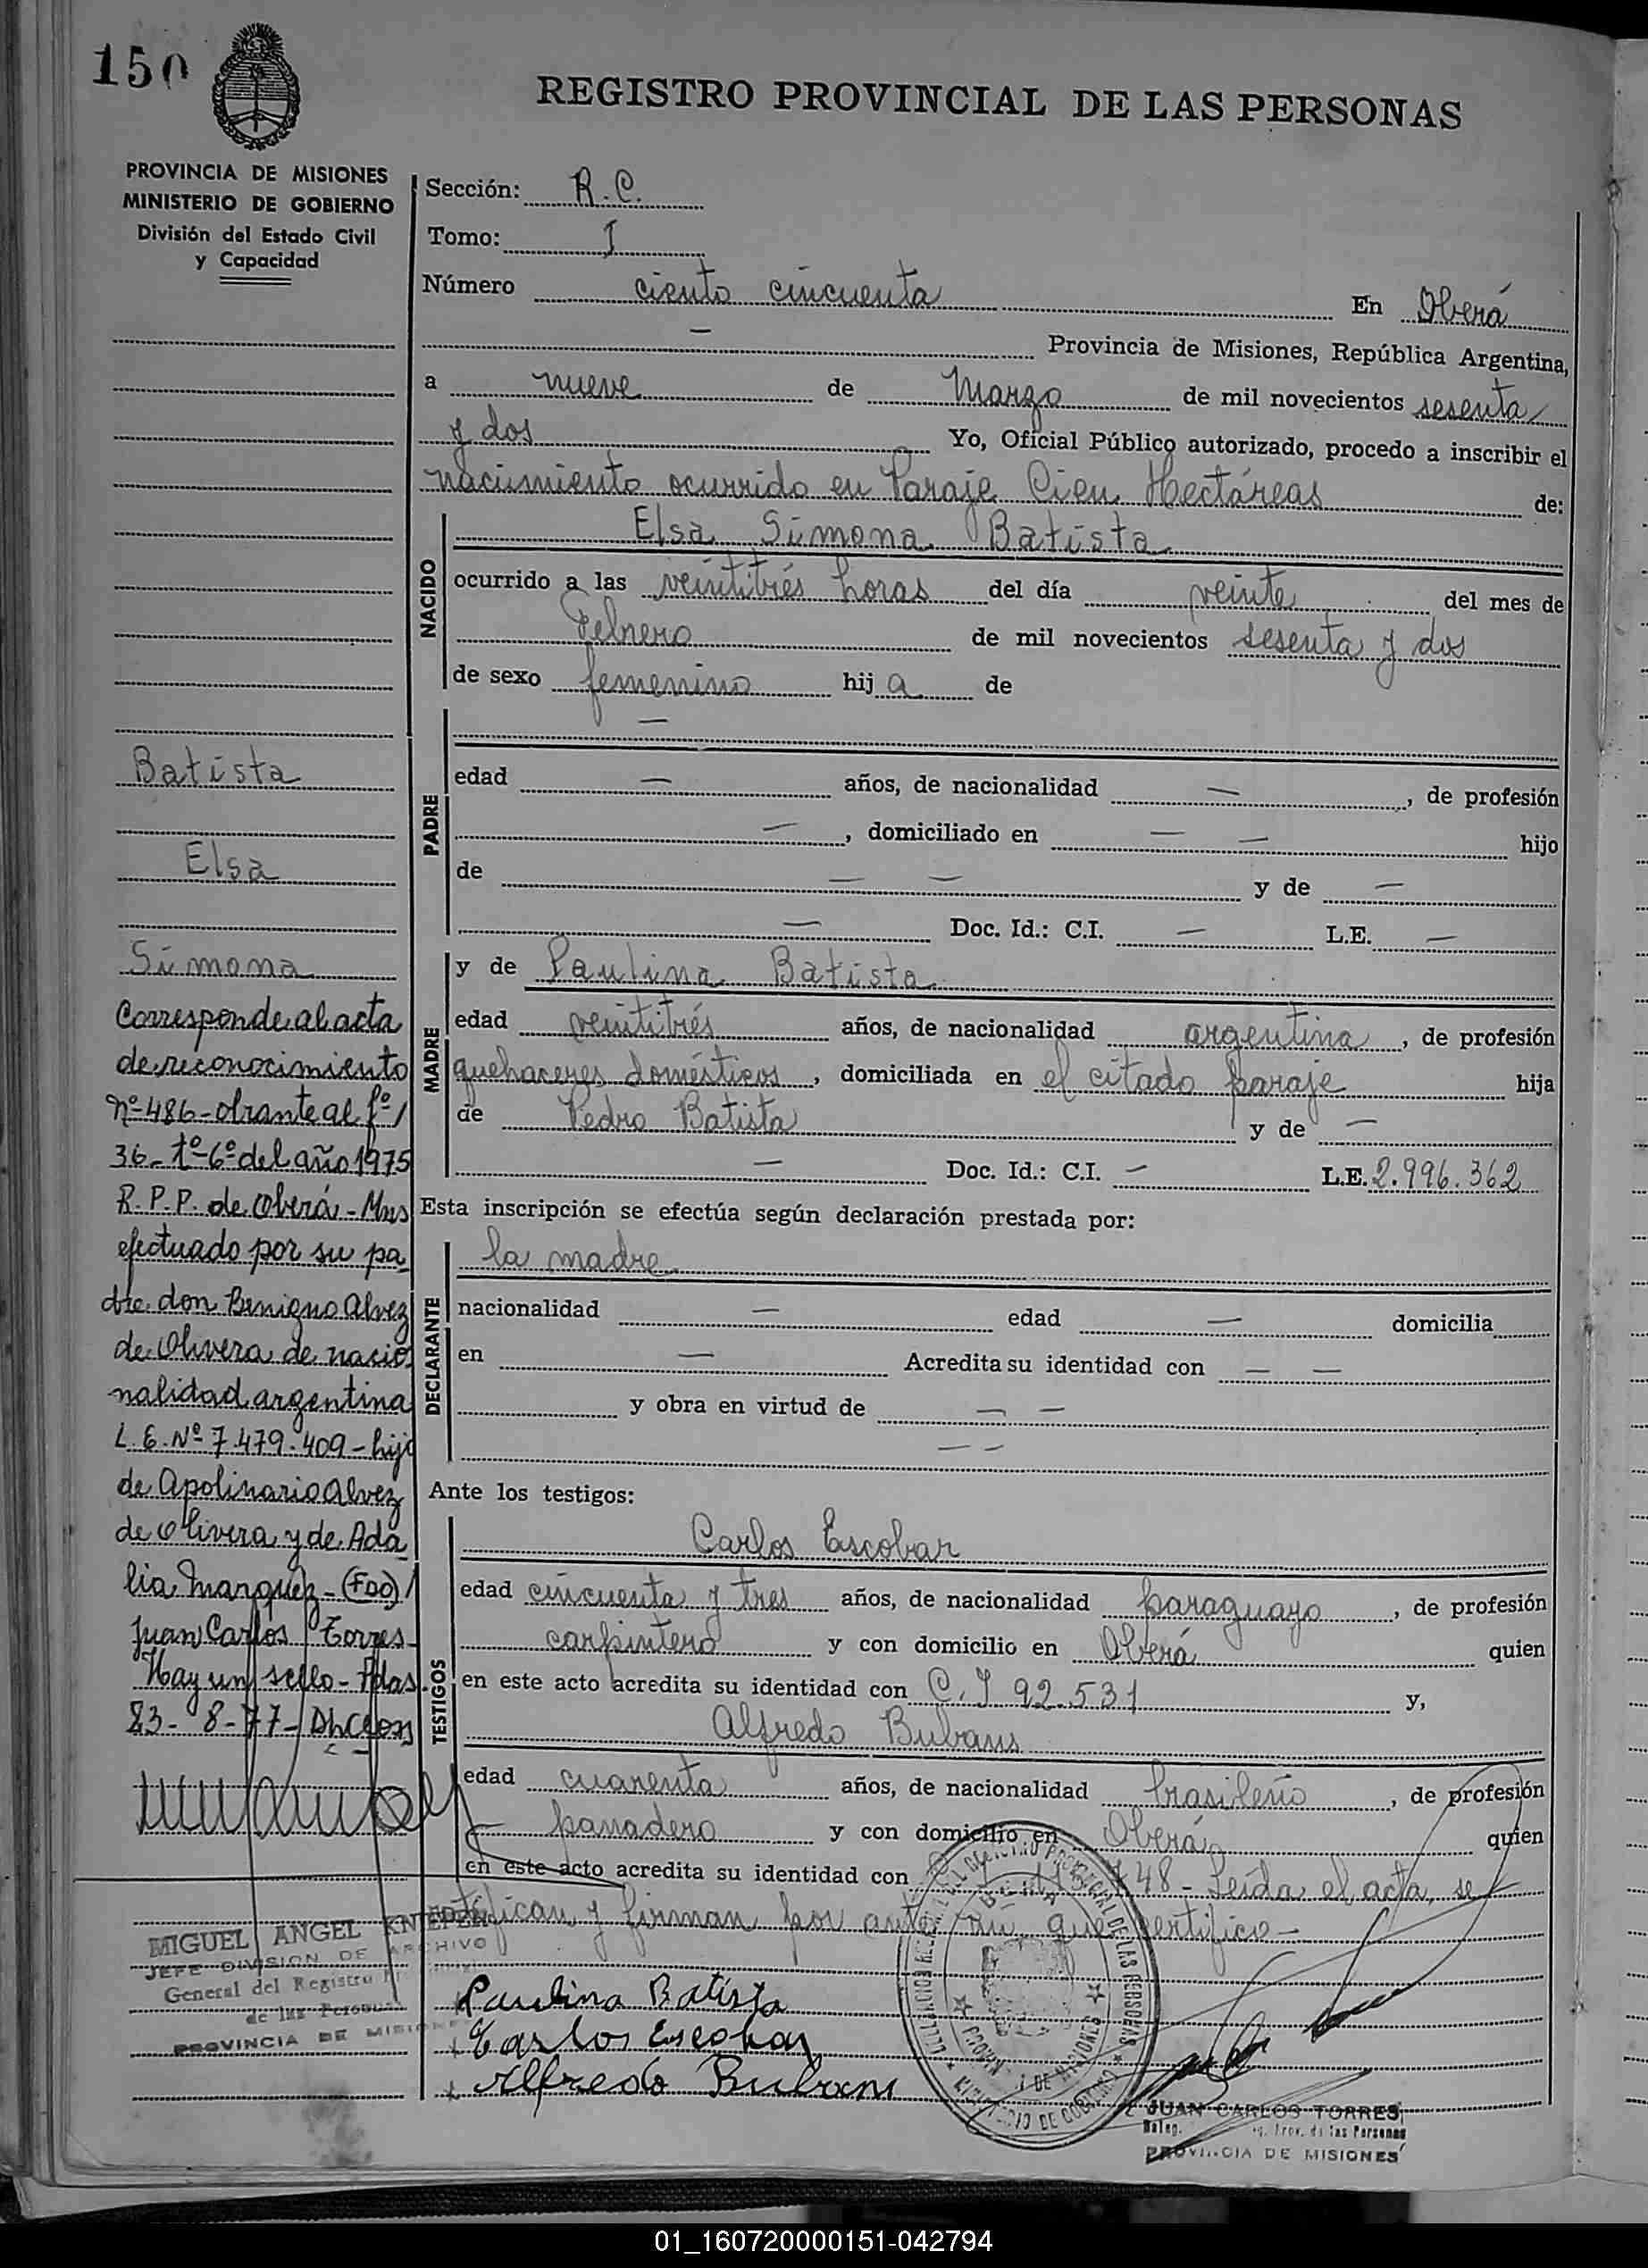 150
REGISTRO PROVINCIAL DE LAS PERSONAS
PROVINCIA DE MISIONES
MINISTERIO DE GOBIERNO
División del Estado Civil
y Capacidad
Batista
Elsa
Simona
Corresponde al acta
de reconocimiento
Nº-486-obrante al fº/
36-tº-6º del año 1975
R.P.P. de Oberá-Mns
efectuado por su pa
dre don Benigno Alvez
de Olivera de nacio
nalidad argentina
L.E.Nº 7.479.409-hijo
de Apolinario Alvez
de Olivera y de Ada
lia Marquez-(FDO)/
Juan Carlos Torres-
Hay un sello-Pdas.
23-8-77-
MIGUEL ANGEL
JEFE DIVISION DE ARCHIVO
General del Registro
de las Personas
PROVINCIA DE MISIONES
Sección: R.C.
Tomo: I
Número ciento cincuenta En Oberá
— Provincia de Misiones, República Argentina,
a nueve de Marzo de mil novecientos sesenta
y dos Yo, Oficial Público autorizado, procedo a inscribir el
nacimiento ocurrido en Paraje Cien Hectáreas de:
NACIDO
Elsa Simona Batista
ocurrido a las veintitrés horas del día veinte del mes de
Febrero de mil novecientos sesenta y dos
de sexo femenino hija de
PADRE
—
edad — años, de nacionalidad —, de profesión
—, domiciliado en — — hijo
de — — y de —
— Doc. Id.: C.I. — L.E. —
MADRE
y de Paulina Batista
edad veintitrés años, de nacionalidad argentina, de profesión
quehaceres domésticos, domiciliada en el citado paraje hija
de Pedro Batista y de —
— Doc. Id.: C.I. — L.E. 2.996.362
Esta inscripción se efectúa según declaración prestada por:
DECLARANTE
la madre
nacionalidad — edad — domicilia
en — Acredita su identidad con — —
y obra en virtud de — —
— —
Ante los testigos:
TESTIGOS
Carlos Escobar
edad cincuenta y tres años, de nacionalidad paraguayo, de profesión
carpintero y con domicilio en Oberá quien
en este acto acredita su identidad con C.I 92.531 y,
Alfredo Bubans
edad cuarenta años, de nacionalidad brasileño, de profesión
panadero y con domicilio en Oberá quien
en este acto acredita su identidad con 48- Leída el acta, se
ratifican y firman por ante mi, que certifico-
Paulina Batista
Carlos Escobar
Alfredo Bubans
JUAN CARLOS TORRES
Deleg. Prov. de las Personas
PROVINCIA DE MISIONES
01_160720000151-042794